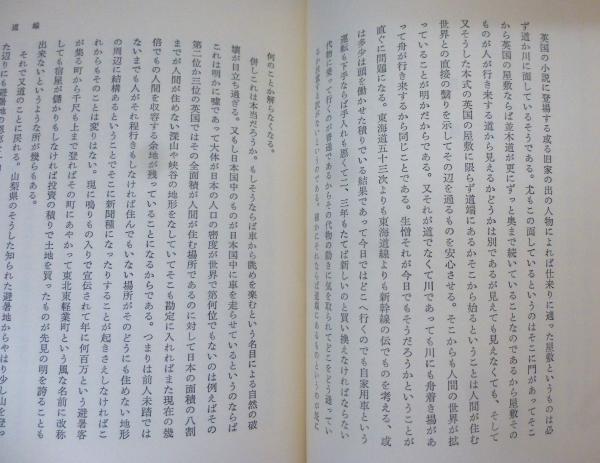 英国の小説に登場する或る旧家の出の人物によれば仕来りに適った屋敷というものは必
ず道か川に面しているそうである。尤もこの面しているというのはそこに門があってそこ
から英国の屋敷ならば並木道が更にずっと奥まで続いていることなのであるから屋敷その
ものが人が行き来する道から見えるかどうかは別であるが見えても見えなくても、そして
又そうした本式の英国の屋敷に限らず道端にあるかそこから始るということは人間が住む
世界との直接の繫りを示してその辺を通るものを安心させる。そこからも人間の世界が拡
ることが明かだからである。又それが道でなくて川であっても川にも舟着き場があ
って舟が行き来するから同じことである。生憎それが今日でもそうだろうかということが
直ぐに問題になる。東海道五十三次よりも東海道線よりも新幹線の伝でものを考える、或
は多少は頭を働かせた積りでいる結果であって今日ではどこへ行くのでも自家用車という
運転も下手ならば手入れも悪くて二、三年もたてば新しいのと買い換えなければならない
代物に乗って行くのが普通であるからその代物の動きに気を取られてどこをどう通ってい
何のことか解らなくなる。
併しこれは本当だろうか。もしそうならば車から眺めを楽む
という名目による自然の破
壊が目立ち過ぎる。又もし日本国中のものが日本国中に車を走らせているというのならば
これは明かに嘘であって大体が日本の人口の密度が世界で第何位でもないのは例えばその
第二位か三位の英国ではその全面積が人間が住む場所であるのに対して日本の面積の八割
までが人間が住めない深山や峡谷の地形をなしていてそこも勘定に入れればまだ現在の幾
倍でもの人間を収容する余地が残っていることになるからである。つまりは前人未踏では
ないまでも人がそれ程行きもしなければ住んでもいない場所がそのどうにも住めない地形
の周辺に結構あるということでそこに新聞種になったりすることが起きさえしなければこ
れからもそのことは変りはない。現に鳴りもの入りで宣伝されて年に何百万という避暑客
が集る町から千尺も上まで登ればその町にあやかって東北東軽業町という風な名前に改称
しても宿屋が儲かりもしなければ投資の積りで土地を買ったものが先見の明を誇ることも
出来ないというような所が幾らもある。
それで又道のことに戻れる。山梨県のそうした知られた避暑地からやはり少し山を登っ